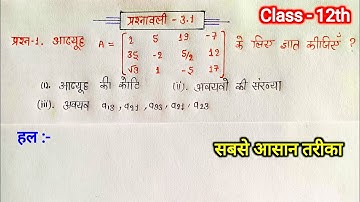 प्रश्नावली - 3.1
Class - 12th
प्रश्न-1. आव्यूह A = [ 2 5 19 -7
35 -2 5/2 12
√3 1 -5 17 ] के लिए ज्ञात कीजिएँ ?
(i). आव्यूह की कोटि (ii). अवयवों की संख्या
(iii). अवयव a₁₃, a₂₁, a₃₃, a₂₄, a₂₃
हल :-
सबसे आसान तरीका